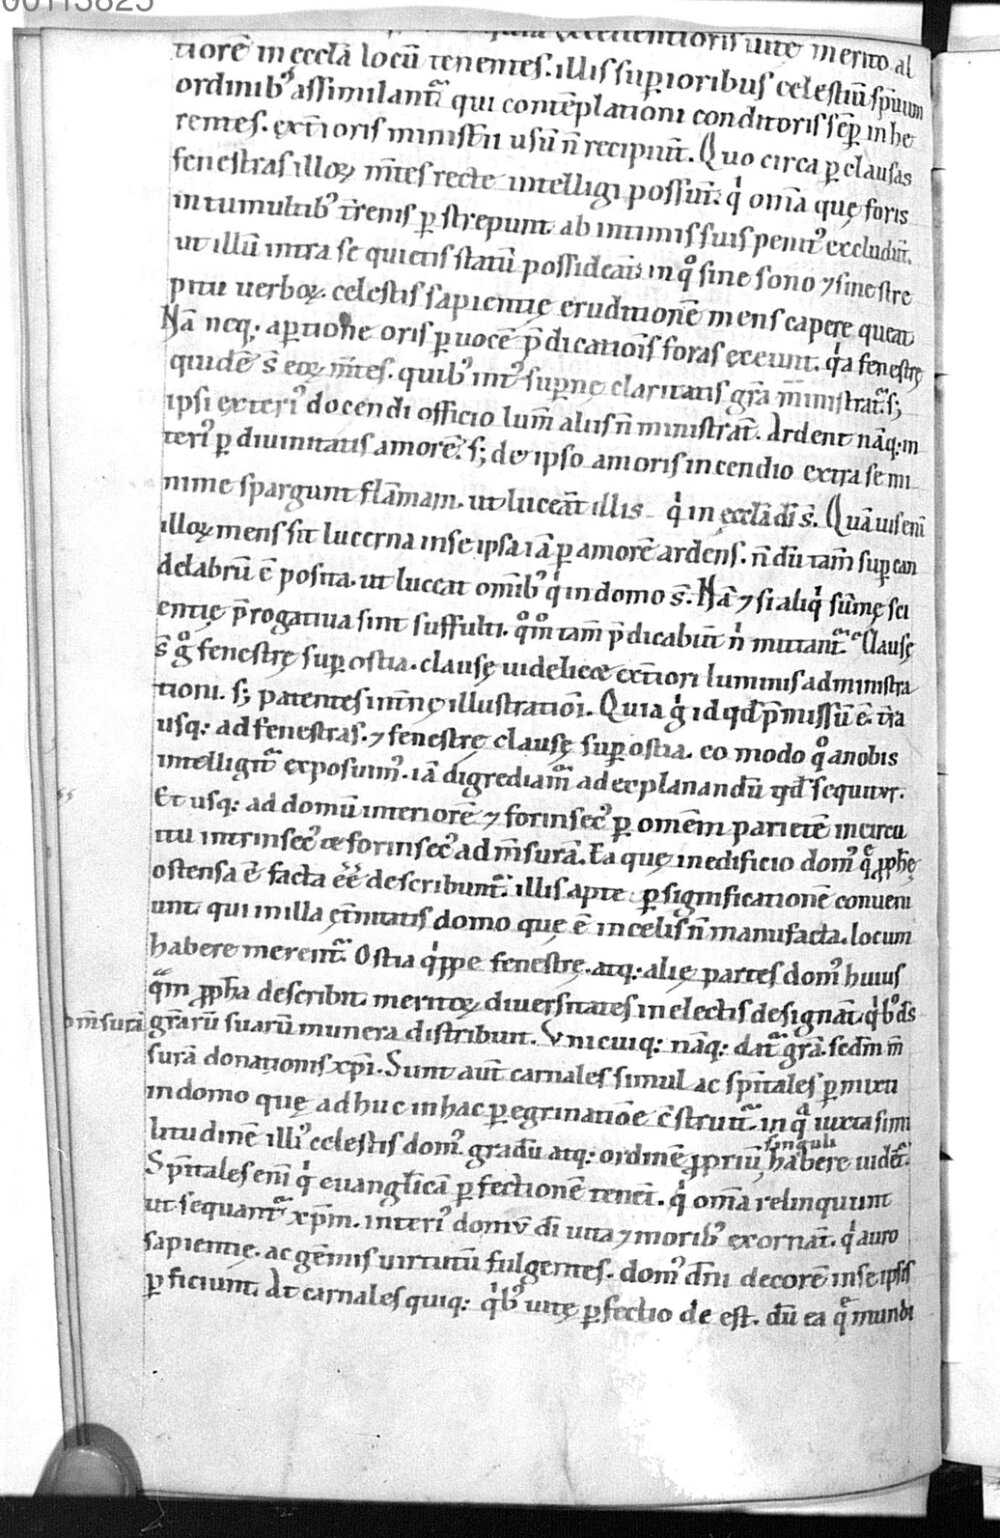 00113825
excellentioris uitę merito al
tiorē in ęcclā locū tenentes. illis suꝑioribus celestiū sp̄uum
ordinibꝰ assimilant᷑ qui contēplationi conditoris sēꝑ inhe
rentes. ext̄ioris minist̄ii usū n̄ recipiūt. Quo circa ꝑ clausas
fenestras illoꝝ m̄tes recte intelligi possūt. qͥ om̄a quę foris
in tumultibꝰ t̄renis ꝑstrepunt ab intimis suis penitꝰ excludūt.
ut illū intra se quietis statū possideāt. in qͦ sine sono ⁊ sine stre
pitu uerboꝝ. celestis sapientię eruditionē mens capere queat
Nā neq; aꝑtione oris ꝑ uocē p̄dicatiōis foras exeunt. qͥa fenestrę
quidē s̄ eoꝝ m̄tes. quibꝰ intꝰ suꝑnę claritatis gr̄a ministrat᷑. s;
ipsi exteriꝰ docendi officio lum̄ aliis n̄ ministrāt. Ardent nāq; in
teriꝰ ꝑ diuinitatis amorē. s; de ipso amoris incendio extra se mi
nime spargunt flāmam. ut luceāt illis qͥ in ęcclā dī s̄. Quāuis enī
illoꝝ mens sit lucerna in se ipsa iā ꝑ amorē ardens. n̄ dū tam̄ suꝑ can
delabrū ē posita. ut luceat om̄ibꝰ qͥ in domo s̄. Nā ⁊ si aliqͥ sūmę sci
entię p̄rogatiua sint suffulti. qͦm̊ tam̄ p̄dicabūt n̄ mittant᷑. Clausę
s̄ gͦ fenestrę suꝑ ostia. clausę uidelicet ext̄iori luminis administra
tioni. s; patentes int̄nę illustratiōi. Quia gͥ id qd̄ p̄missū ē. t̄ra
usq; ad fenestras. ⁊ fenestrę clausę suꝑ ostia. eo modo qͦ a nobis
intelligit᷑ exposuimꝰ. iā digrediam᷑ ad explanandū qd̄ sequitur.
Et usq; ad domū interiorē ⁊ forinsecꝰ ꝑ omēm parietē in circu
itu intrinsecꝰ et forinsecꝰ ad m̄surā. Ea quę in edificio domꝰ qͣ ꝓph̄ę
ostensa ē facta eē describunt᷑. illis apte ꝑ significationē conueni
unt. qui in illa et̄nitatis domo quę ē in celis n̄ manufacta. locum
habere merent᷑. Ostia qͥppe fenestrę. atq; alię partes domꝰ huius
qͣm ꝓph̄a describit. meritoꝝ diuersitates in electis designāt qͥbꝰ d̄s
gr̄arū suarū munera distribuit. Vnicuiq; nāq; dat᷑ gr̄a. scd̄m m̄
surā donationis xp̄i. Sunt aut̄ carnales simul ac sp̄itales ꝑmixti
in domo quę adhuc in hac ꝑegrinatiōe c̄struit᷑. in qͣ iuxta simi
litudinē illiꝰ celestis domꝰ. gradū atq; ordinē ꝓpriū singuli habere uidet᷑.
Sp̄itales enī qͥ euanglīcā ꝑfectionē tenēt. qͥ om̄a relinquunt
ut sequant᷑ xp̄m. interiꝰ domū dī uita ⁊ moribꝰ exornāt. qͥ auro
sapientię. ac gēmis uirtutū fulgentes. domꝰ dn̄i decorē in se ipsis
ꝑficiunt. At carnales quiq; qͥbꝰ uitę ꝑfectio de est. dū ea qͣ mundi